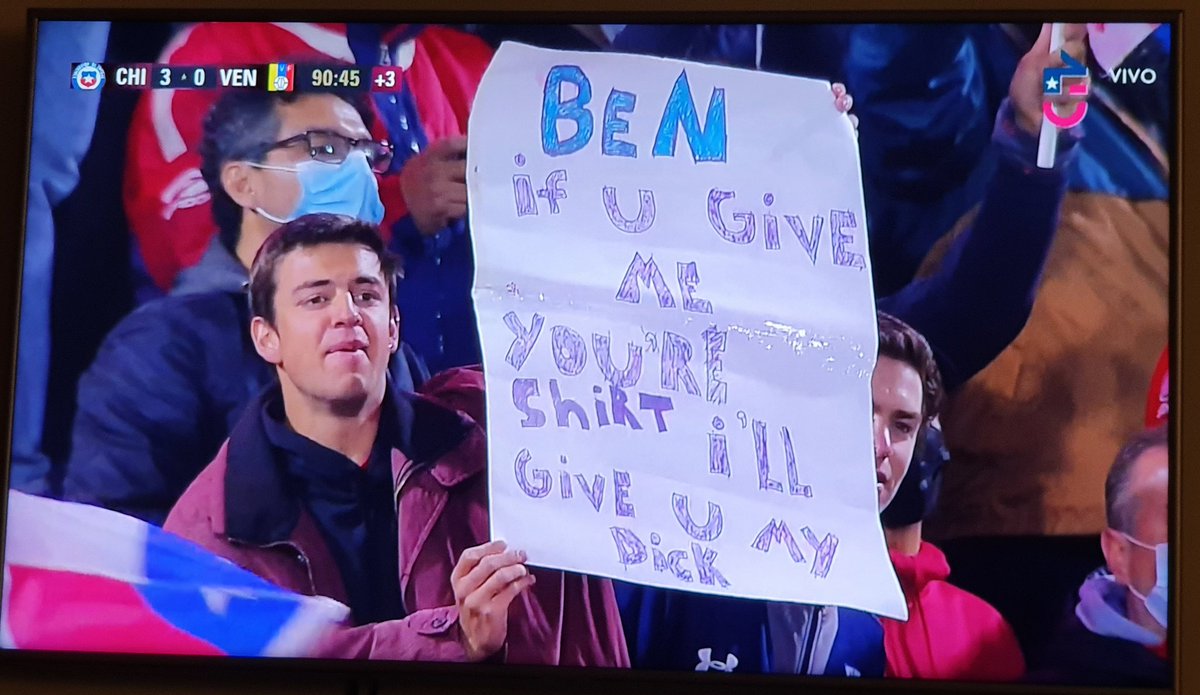 CHI 3 · 0 VEN 90:45 +3
VIVO
BEN
if U GiVE
ME
YOU'RE
ShiRT i'LL
GiVE U MY
DiCK